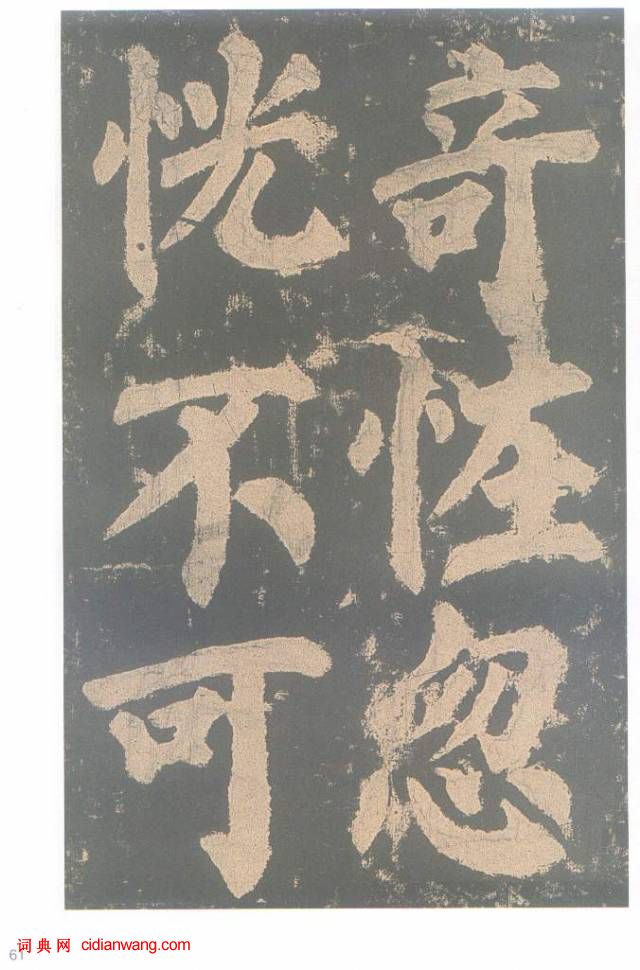 竒恠忽
恍不可
61
词典网 cidianwang.com